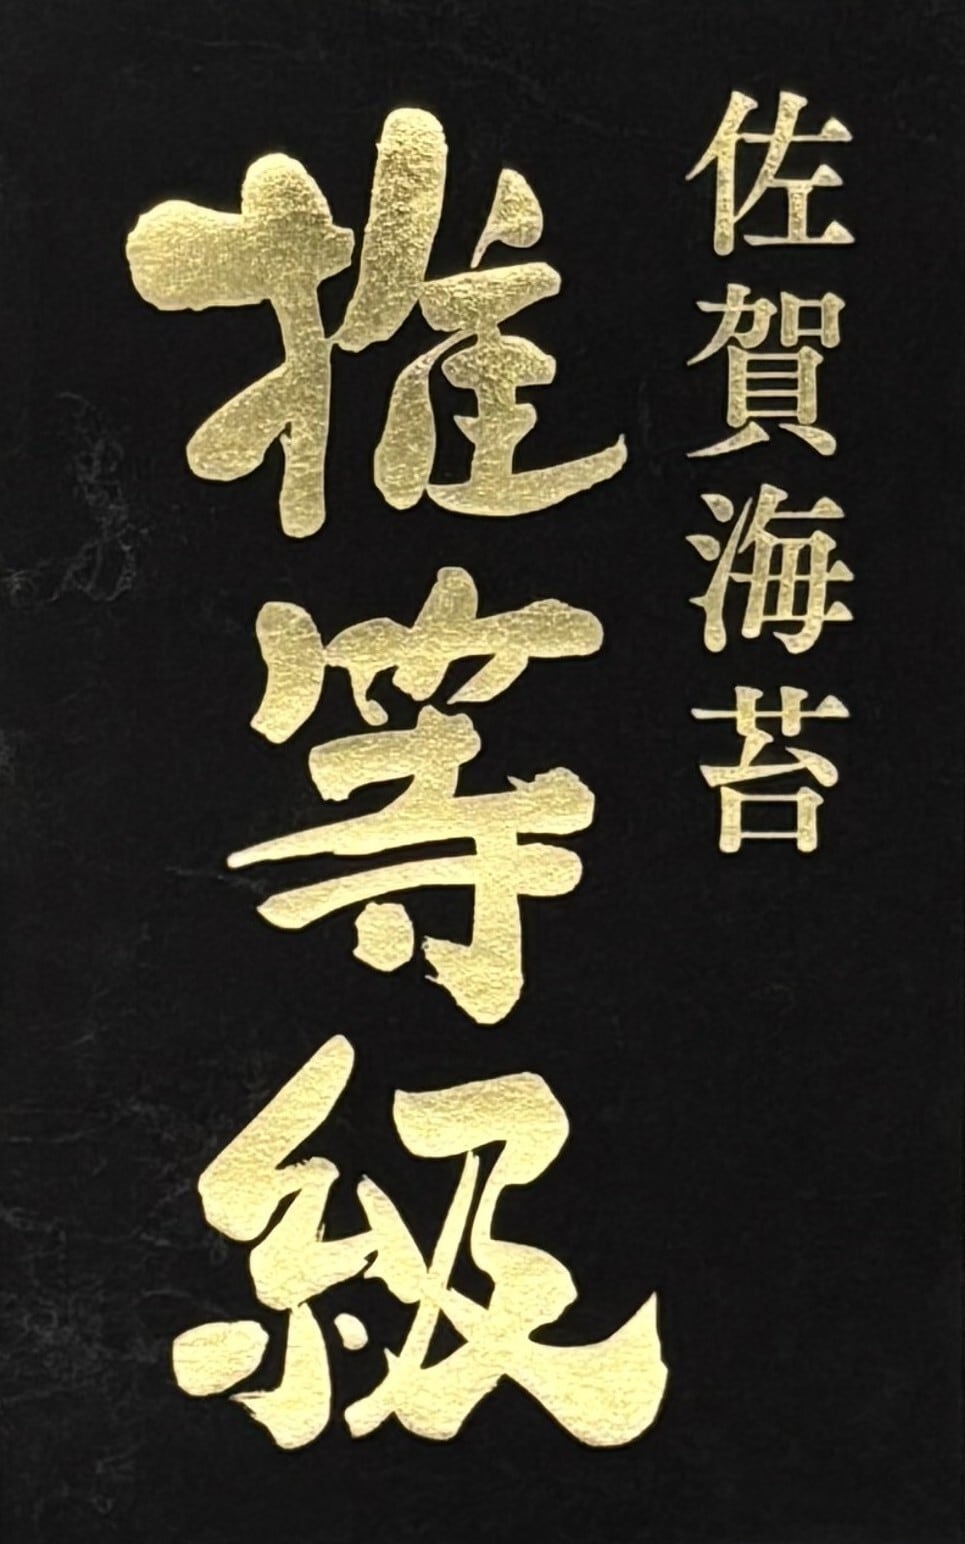 佐賀海苔
推等級